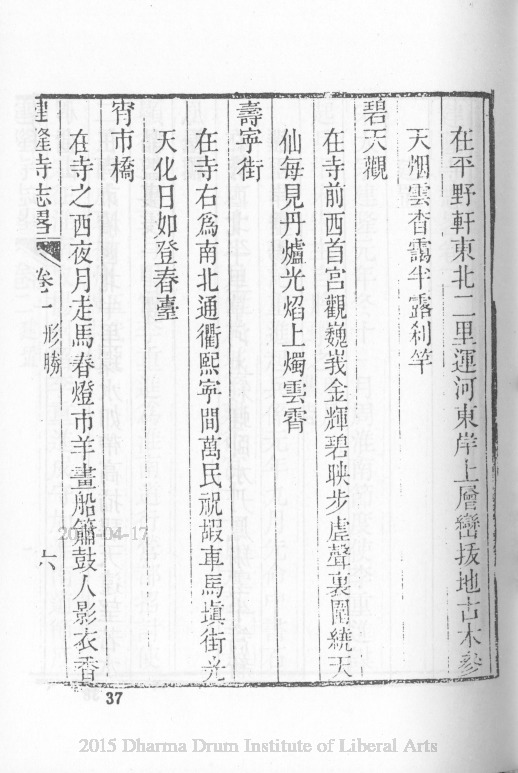 在平野軒東北二里運河東岸上層巒拔地古木參
天烟雲杳靄半露刹竿
碧天觀
在寺前西首宮觀巍峩金輝碧映步虛聲裏圍繞天
仙每見丹爐光焰上燭雲霄
壽寧街
在寺右爲南北通衢熙寧間萬民祝嘏車馬塡街光
天化日如登春臺
宵市橋
在寺之西夜月走馬春燈市羊畫船簫鼓人影衣香
建隆寺志畧 卷一 形勝 六
2015-04-17
37
2015 Dharma Drum Institute of Liberal Arts